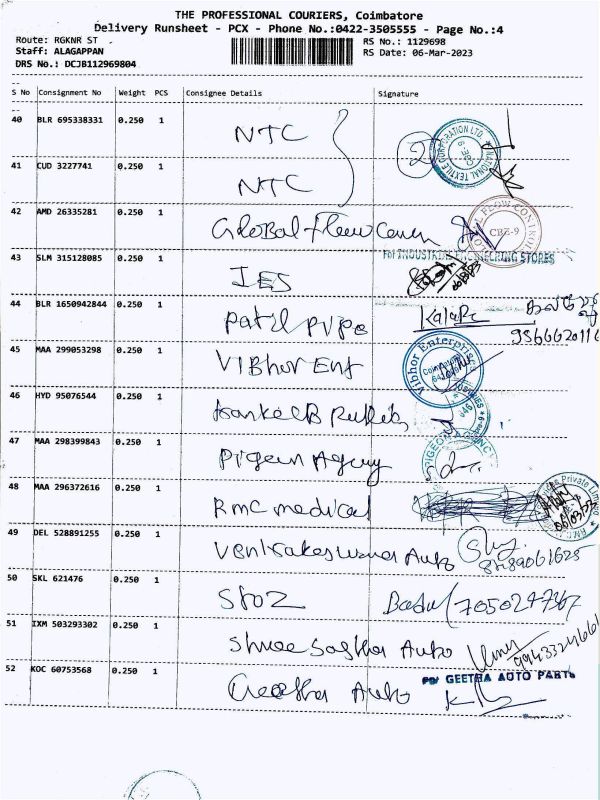 THE PROFESSIONAL COURIERS, Coimbatore
Delivery Runsheet - PCX - Phone No.:0422-3505555 - Page No.:4
Route: RGKNR ST
RS No.: 1129698
Staff: ALAGAPPAN
RS Date: 06-Mar-2023
DRS No.: DCJB112969804
S No Consignment No Weight PCS Consignee Details Signature
40 BLR 695338331 0.250 1 NTC
2 NATIONAL TEXTILE CORPORATION LTD. CBE-9
41 CUD 3227741 0.250 1 NTC
42 AMD 26335281 0.250 1 Global Flow
FLOW CONTROL CBE-9
For INDUSTRIAL ENGINEERING STORES
43 SLM 315128085 0.250 1 IES
44 BLR 1650942844 0.250 1 Patil Pipe
45 MAA 299053298 0.250 1 Vibhor Ent
Vibhor Enterprise Coimbatore
46 HYD 95076544 0.250 1
47 MAA 298399843 0.250 1 Pigeon Agency
PIGEON AGENCY
48 MAA 296372616 0.250 1 RMC medical
Private Limited
49 DEL 528891255 0.250 1 Venkateswara Auto
50 SKL 621476 0.250 1 Stoz
51 IXM 503293302 0.250 1 Shree Sastha Auto
52 KOC 60753568 0.250 1 Geetha Auto
For GEETHA AUTO PARTS